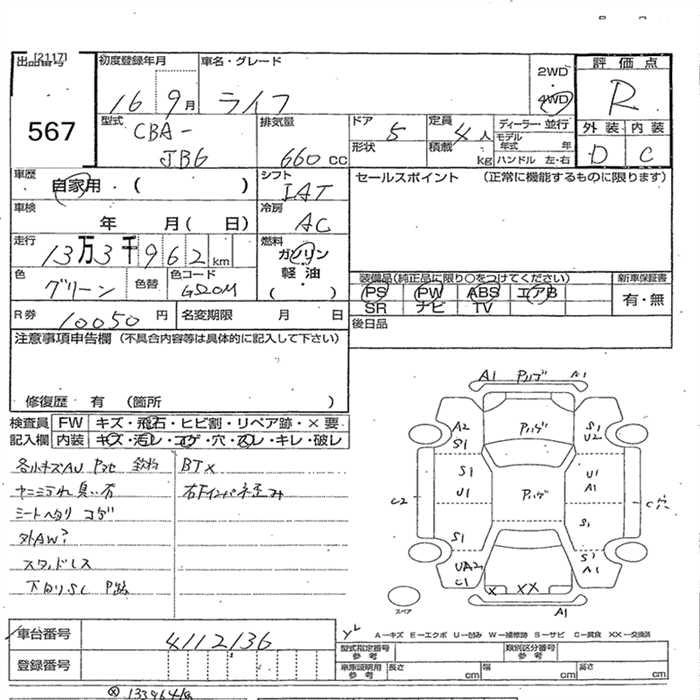 [2117]
出品番号
567
初度登録年月
16 9月
車名・グレード
ライフ
2WD
4WD
評価点
R
型式
CBA-
JB6
排気量
660 CC
ドア
5
形状
定員
4人
積載
kg
ディーラー・並行
モデル年式 年
ハンドル 左・右
外装 内装
D C
車歴
自家用・( )
シフト
IAT
セールスポイント (正常に機能するものに限ります)
車検
年 月( 日)
冷房
AC
走行
13万3千962km
燃料
ガソリン
軽油
( )
色
グリーン
色替
色コード
装備品(純正品に限り○をつけてください)
新車保証書
PS PW ABS エアB
有・無
SR ナビ TV
R券
10050円
名変期限 月 日
後日品
注意事項申告欄 (不具合内容等は具体的に記入して下さい)
修復歴 有 (箇所 )
検査員
記入欄
FW キズ・飛石・ヒビ割・リペア跡・×要
内装 キズ・汚レ・コゲ・穴・スレ・キレ・破レ
BT×
外AW?
スタッドレス
A1 Pハゲ A1
A2
S1
Pハゲ
S1
U2
S1
U1
Pハゲ
U1
A1
C2
S1
S1
UA2
C1
X XX
S1
A1
A1
スペア
A-キズ E-エクボ U-凹み W-補修跡 S-サビ C-腐食 XX-交換済
車台番号
4112136
登録番号
型式指定番号
参考
類別区分番号
参考
車庫証明用
参考
長さ cm
幅 cm
高さ cm